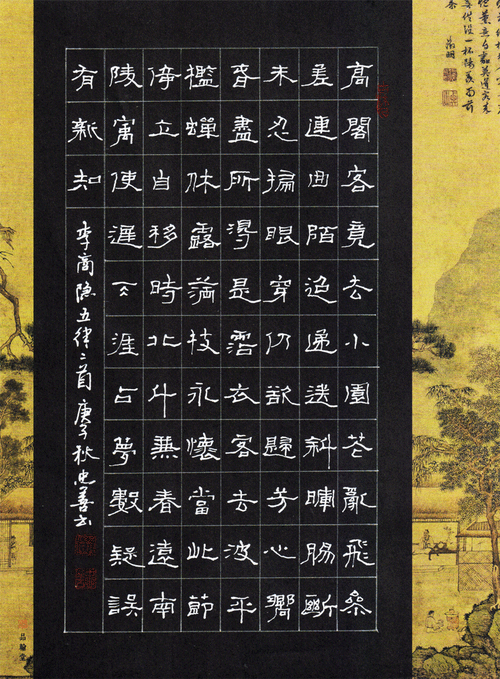 高閣客竟去小園花亂飛參
差連曲陌迢遞送斜暉腸斷
未忍掃眼穿仍欲歸芳心嚮
春盡所得是霑衣客去波平
檻蟬休露滿枝永懷當此節
倚立自移時北斗兼春遠南
陵寓使遲天涯占夢數疑誤
有新知
李商隐五律二首 庚子秋史善书